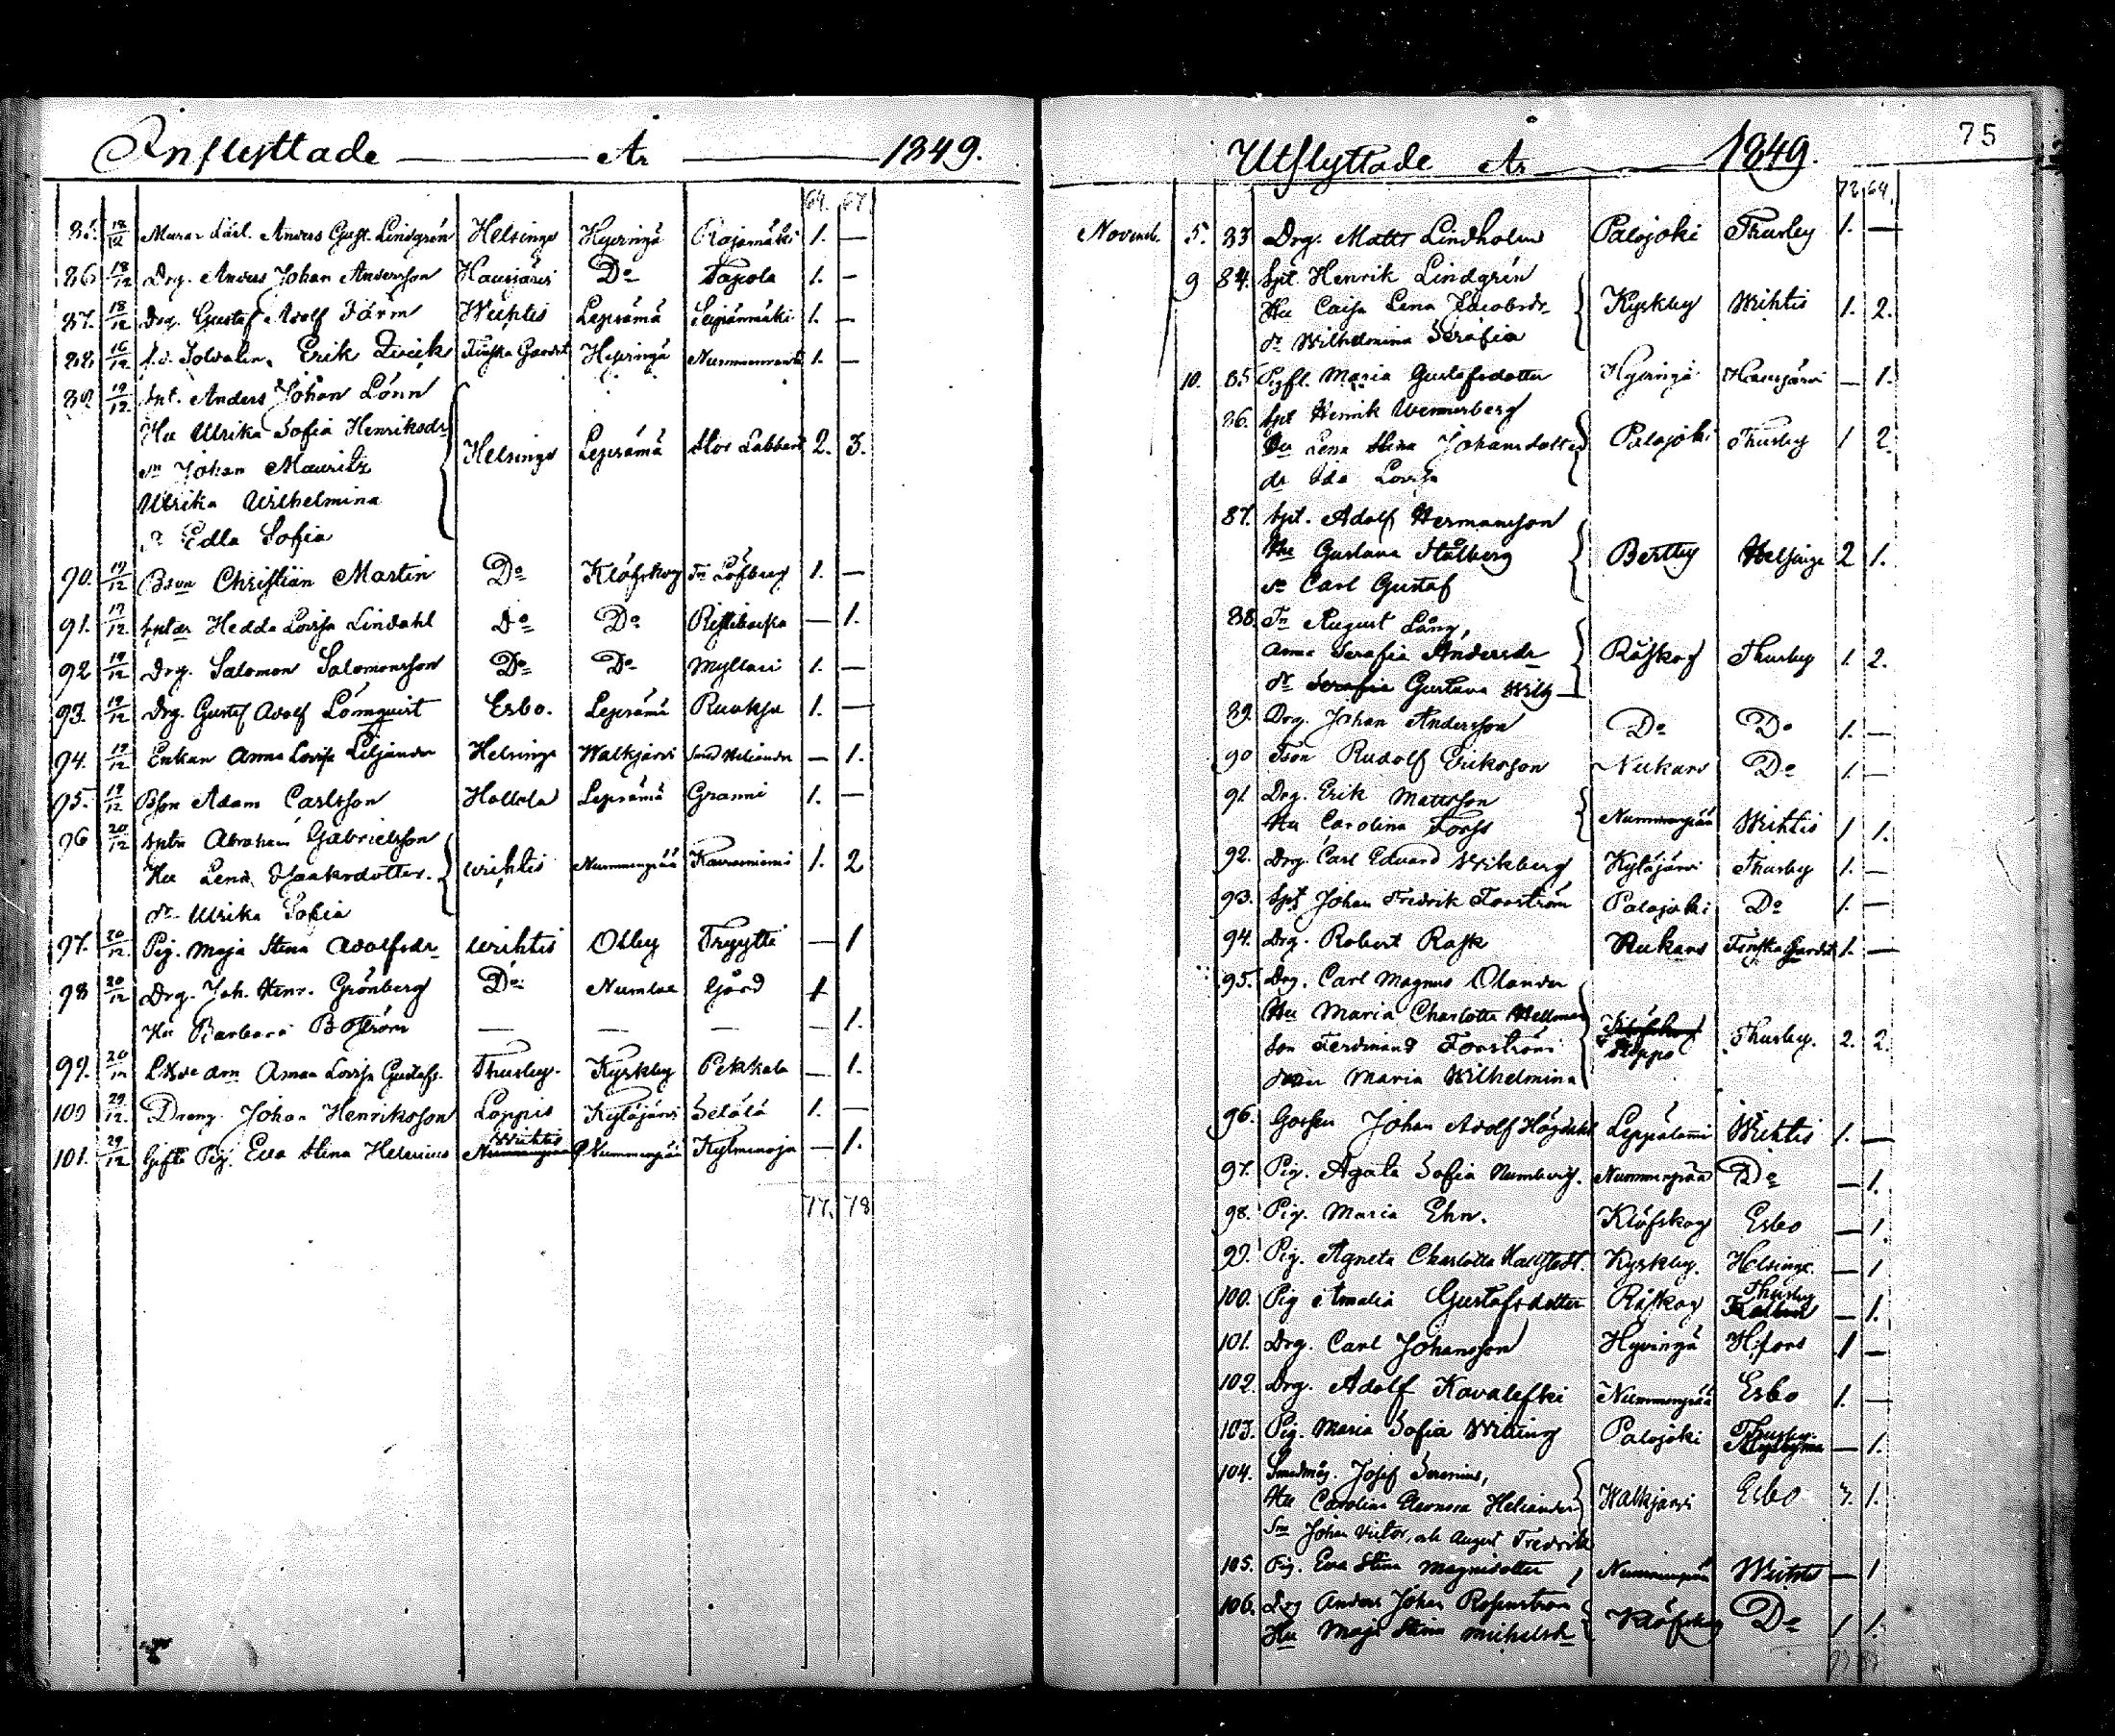 Inflyttade År 1849.
64. 67.
85. 18/12 Murar Lärl. Anders Gust. Lindgrén Helsinge Hyvingä Rajamäki 1. —
86 18/12 Drg. Anders Johan Andersson Hausjärvi Do Tapola 1. —
87. 18/12 Drg. Gustaf Adolf Färm Wichtis Lepsämä 1. —
88. 16/12 Erik Finska Gardet Hyvingä 1. —
89. 19/12 Spt. Anders Johan Lönn
Hu Ulrika Sofia Henriksdr Helsinge Lepsämä Stor Labbart 2. 3.
sn Johan Mauritz
Ulrika Wilhelmina
dr Edla Sofia
90. 19/12 Bson Christian Martin Do Klöfskog Tn Löfberg 1. —
91. 19/12 Hedda Lovisa Lindahl Do Do Ristibacka — 1.
92 19/12 Drg. Salomon Salomonsson Do Do Myllari 1. —
93. 19/12 Drg. Gustaf Adolf Lönnquist Esbo. Lepsämä 1. —
94. 19/12 Enkan Anna Lovisa Liljander Helsinge Walkjärvi — 1.
95. 19/12 Bson Adam Carlsson Hollola Lepsämä Granni 1. —
96 20/12 Abraham Gabrielsson
Hu Lena Isaaksdotter. Wichtis Nummenpää 1. 2
dr Ulrika Sofia
97. 20/12 Pig. Maja Stina Adolfsdr Wichtis Olley — 1
98 20/12 Drg. Joh. Henr. Grönberg Do Numlae Gård 1
Hu Barbara Boström — — — — 1.
99. 20/12 Anna Lovisa Gustafs. Thusby. Kyrkby Pekkala — 1.
100 29/12 Dreng Johan Henriksson Loppis Kytäjärvi Setälä 1. —
101. 29/12 Gifta Pig. Eva Stina Helenius Wichtis Nummenpää Kylmänoja — 1.
77. 78
Utflyttade År 1849.
75
72. 64.
Novemb. 5. 83 Drg. Matts Lindholm Palojoki Thusby 1. —
9 84. Spt. Henrik Lindgrén
Hu Caisa Lena Jacobsdr Kyrkby Wihtis 1. 2.
dr Wilhelmina Serafia
10. 85 Maria Gustafsdotter Hyvingä Hausjärvi — 1.
86. Spt Henrik Wennerberg
Hu Lena Stina Johansdotter Palojoki Thusby 1 2.
dr Ida Lovisa
87. Spt. Adolf Hermansson
Hu Gustava Stålberg Bertby Helsinge 2 1.
sn Carl Gustaf
88. Tn August Lång,
Anna Serafia Andersdr Råskog Thusby 1. 2.
dr Serafia Gustava Wilh
89. Drg. Johan Andersson Do Do 1. —
90 Tson Rudolf Eriksson Nukars Do 1. —
91. Drg. Erik Mattsson
Hu Carolina Forss Nummenpää Wihtis 1 1.
92. Drg. Carl Eduard Wikberg Kytäjärvi Thusby 1. —
93. Spt Johan Fredrik Forström Palojoki Do 1. —
94. Drg. Robert Rask Nukars Finska Gardet 1. —
95. Drg. Carl Magnus Olander
Hu Maria Charlotta Hellman
son Ferdinand Forström Klöfskog Thusby. 2. 2.
dr Maria Wilhelmina
96. Johan Adolf Högdahl Leppälammi Wihtis 1. —
97. Pig. Agata Sofia Numberg. Nummenpää Do — 1.
98. Pig. Maria Ehn. Klöfskog Esbo — 1.
99. Pig. Agneta Charlotta Hallstedt. Kyrkby. Helsinge. — 1
100. Pig Amalia Gustafsdotter Råskog Thusby — 1.
101. Drg. Carl Johansson Hyvingä H:fors 1 —
102. Drg. Adolf Kovalefski Nummenpää Esbo 1. —
103. Pig. Maria Sofia Wiking Palojoki Thusby — 1.
104. Josef Serenius,
Hu Carolina Eleonora Heliander Walkjärvi Esbo 3. 1.
Sn Johan Victor, och August Fredrik
105. Pig. Eva Stina Magnidotter Nummenpää Wichtis — 1
106. Drg Anders Johan Rosenström
Hu Maja Stina Michelsdr Klöfskog Do 1 1.